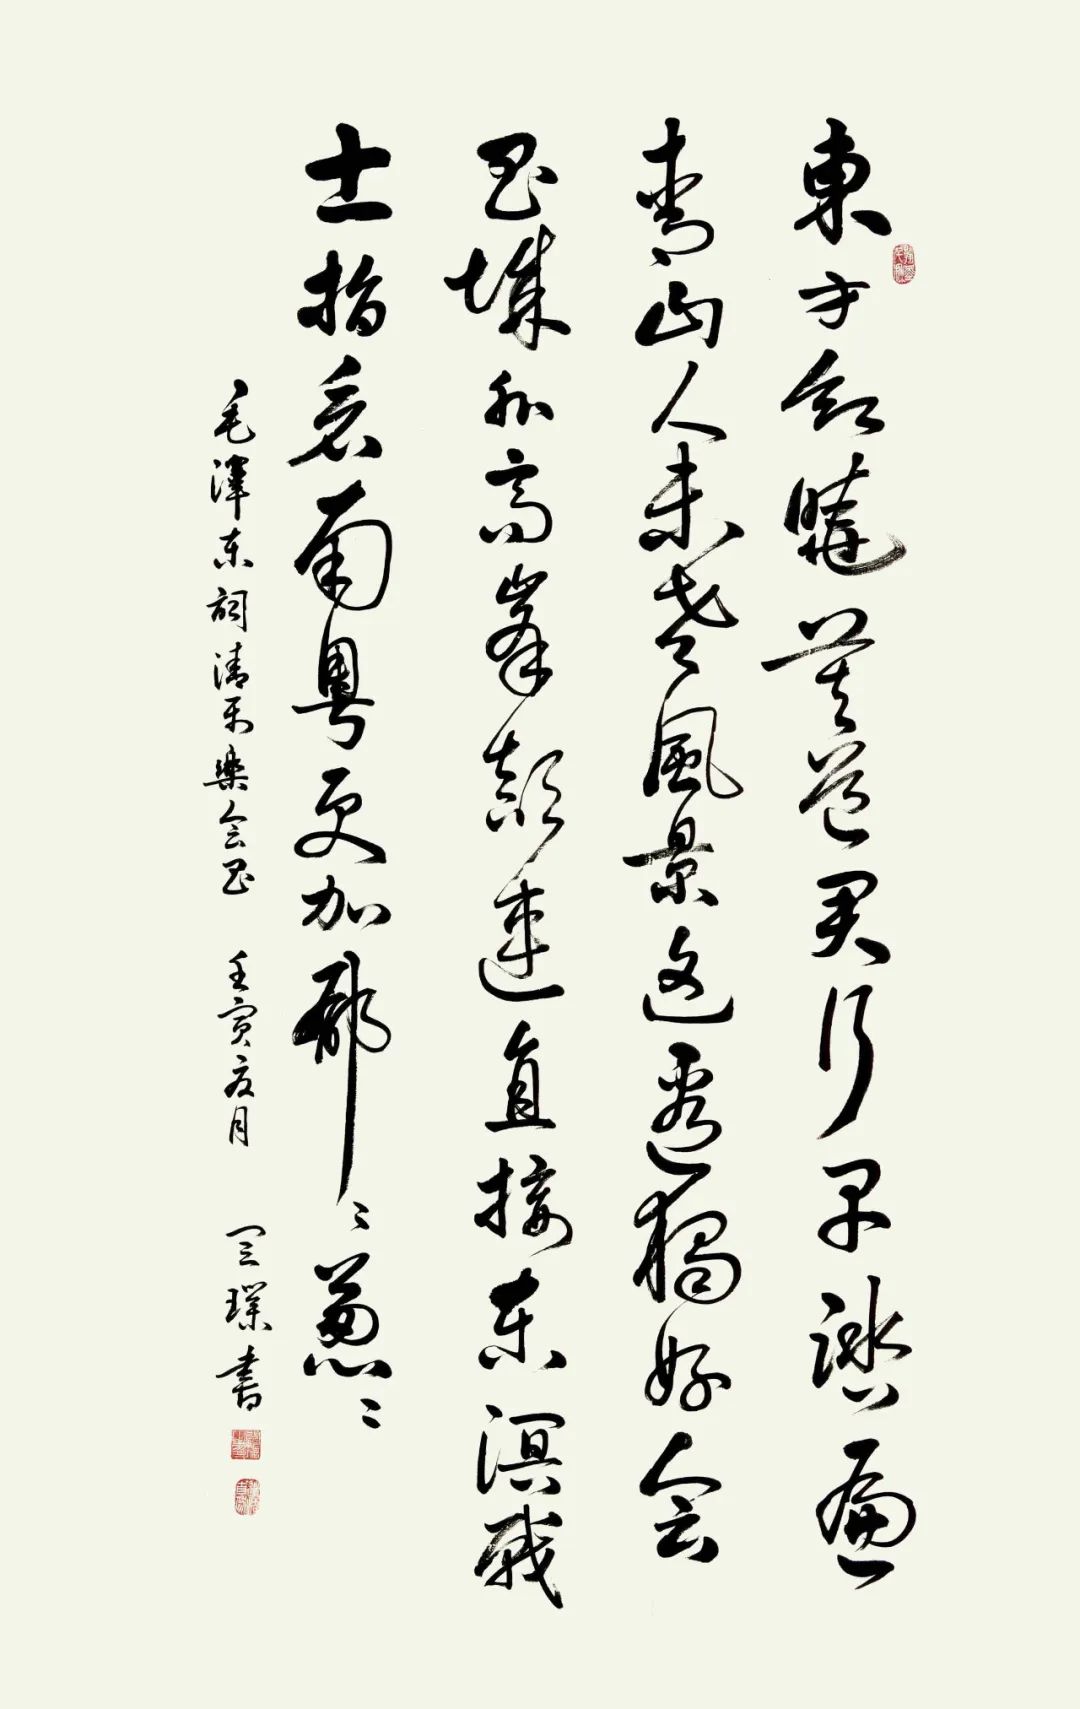 東方欲曉莫道君行早踏遍
青山人未老風景这邊獨好会
昌城外高峯顛連直接东溟战
士指看南粵更加郁〻葱〻
毛澤东詞清平樂会昌 壬寅夏月 璞書